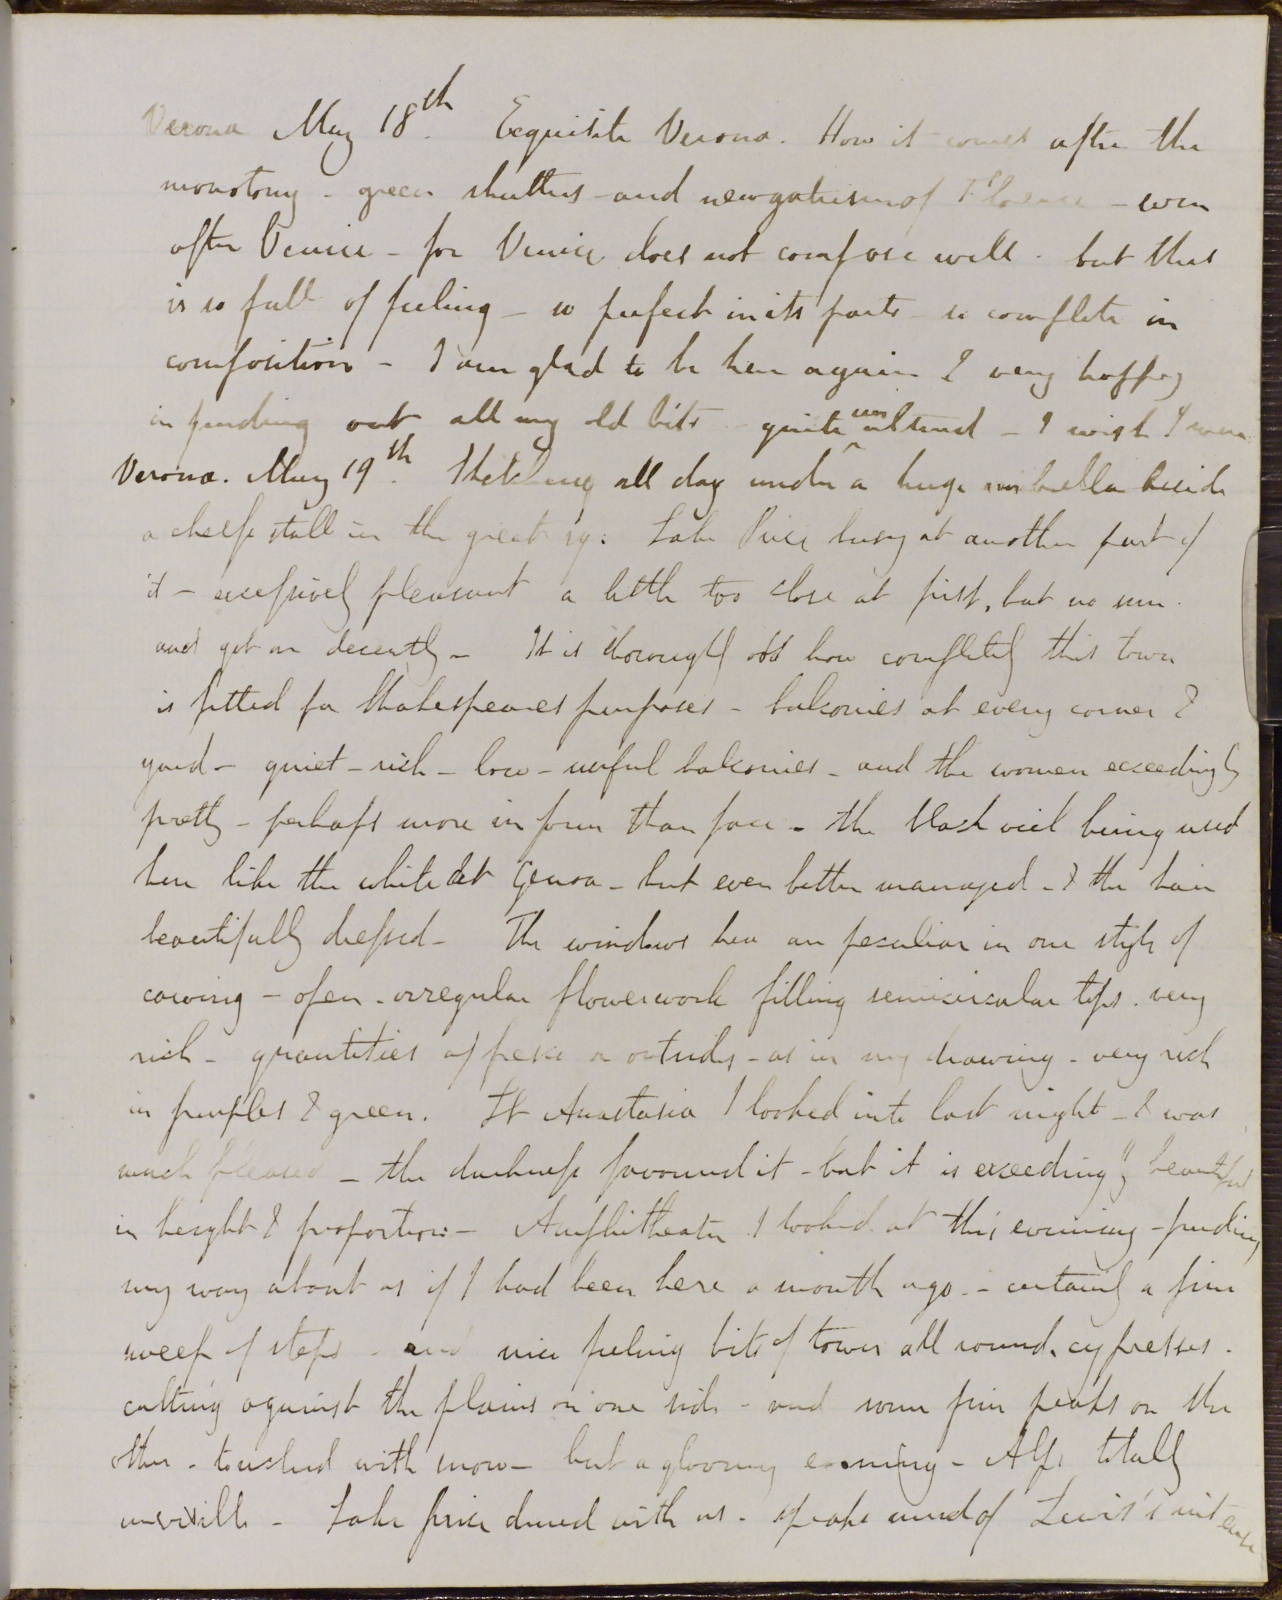 Verona May 18th. Exquisite Verona. How it comes after the
monotony - green shutters - and newgateism of Florence - even
after Venice - for Venice does not compose well. but this
is so full of feeling - so perfect in its parts - so complete in
composition - I am glad to be here again & very happy
in finding out all my old bits - quite unaltered - I wish I were
Verona. May 19th. Sketching all day under a huge umbrella beside
a cheese stall in the great sq: Lake Price busy at another part of
it - excessively pleasant a little too close at first, but no sun.
and got on decently - It is thoroughly odd how completely this town
is fitted for Shakespeares purposes - balconies at every corner &
yard - quiet - rich - low - useful balconies - and the women exceedingly
pretty - perhaps more in form than face - the black veil being used
here like the white at Genoa - but even better managed - & the hair
beautifully dressed - The windows here are peculiar in one style of
carving - open - irregular flowerwork filling semicircular tops. very
rich - quantities of fresco on outsides - as in my drawing - very rich
in purples & green. St Anastasia I looked into last night - & was
much pleased - the darkness favoured it - but it is exceedingly beautiful
in height & proportion - Amphitheatre I looked at this evening - finding
my way about as if I had been here a month ago. - certainly a fine
sweep of steps - and nice feeling bits of tower all round. cypresses.
cutting against the plains on one side - and some fine peaks on the
other - touched with snow - but a gloomy evening - Alps totally
invisible - Lake Price dined with us - spoke much of Lewis's intense